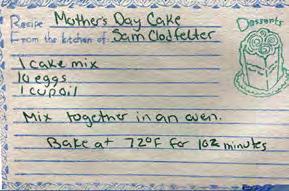 Recipe Mother's Day Cake
Desserts
From the kitchen of Sam Clodfelter
1 cake mix
10 eggs
1 cup oil
Mix together in an oven.
Bake at 72°F for 102 minutes